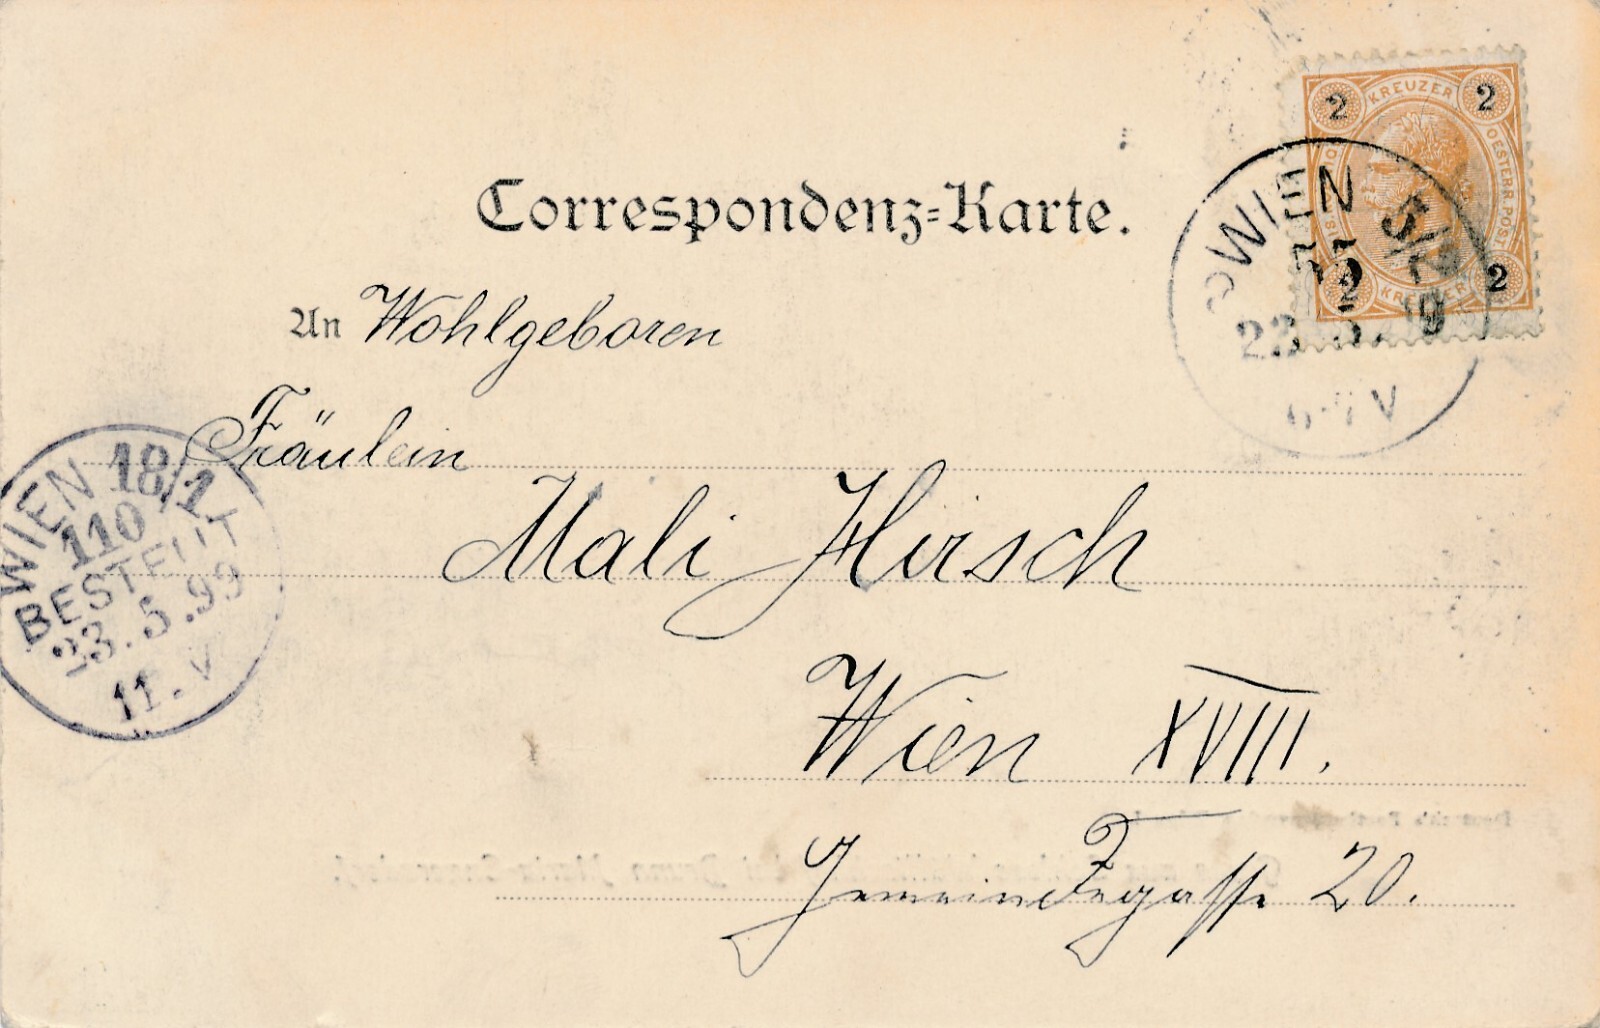 Correspondenz-Karte.
2 KREUZER 2
OESTERR. POST
2 KREUZER 2
WIEN 5/2
23
V
An Wohlgeboren
Fräulein
Mali Hirsch
Wien XVIII.
20.
WIEN 18/1
110
BESTELLT
23.5.99
11.V